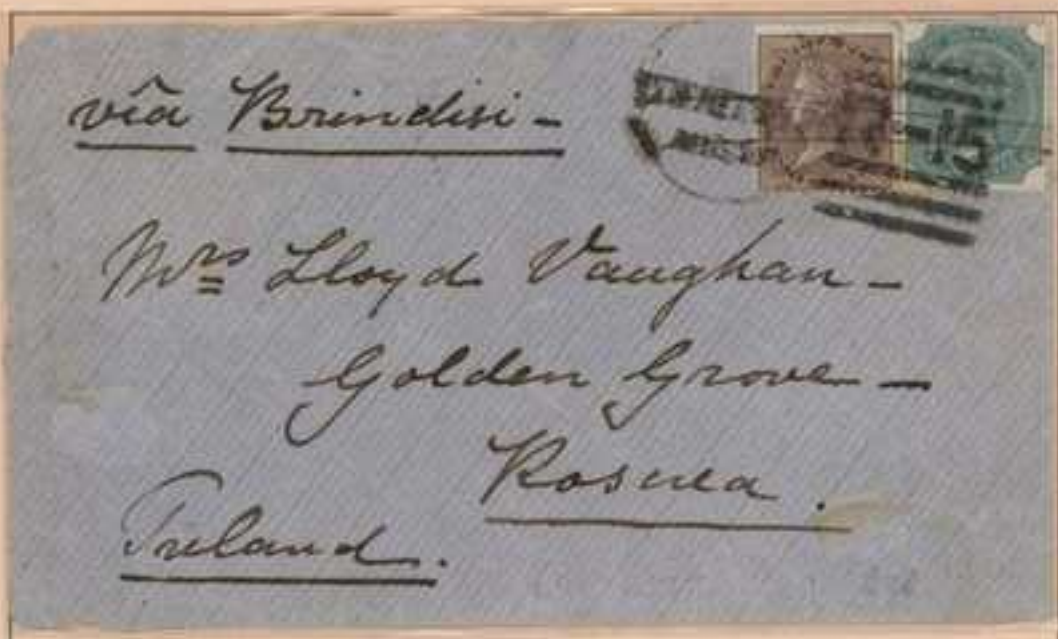 viâ Brindisi -
Mrs Lloyd Vaughan -
Golden Grove -
Roscrea.
Ireland.